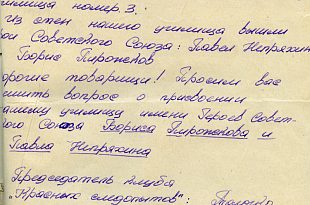 илища номер 3.
Из стен нашего училища вышли
ои Советского Союза: Павел Непряхин
Борис Пирожков
орогие товарищи! Просим вас
шить вопрос о присвоении
ашему училищу имени Героев Совет-
ого Союза Бориса Пирожкова и
Павла Непряхина
Председатель клуба
"Красных следопытов":